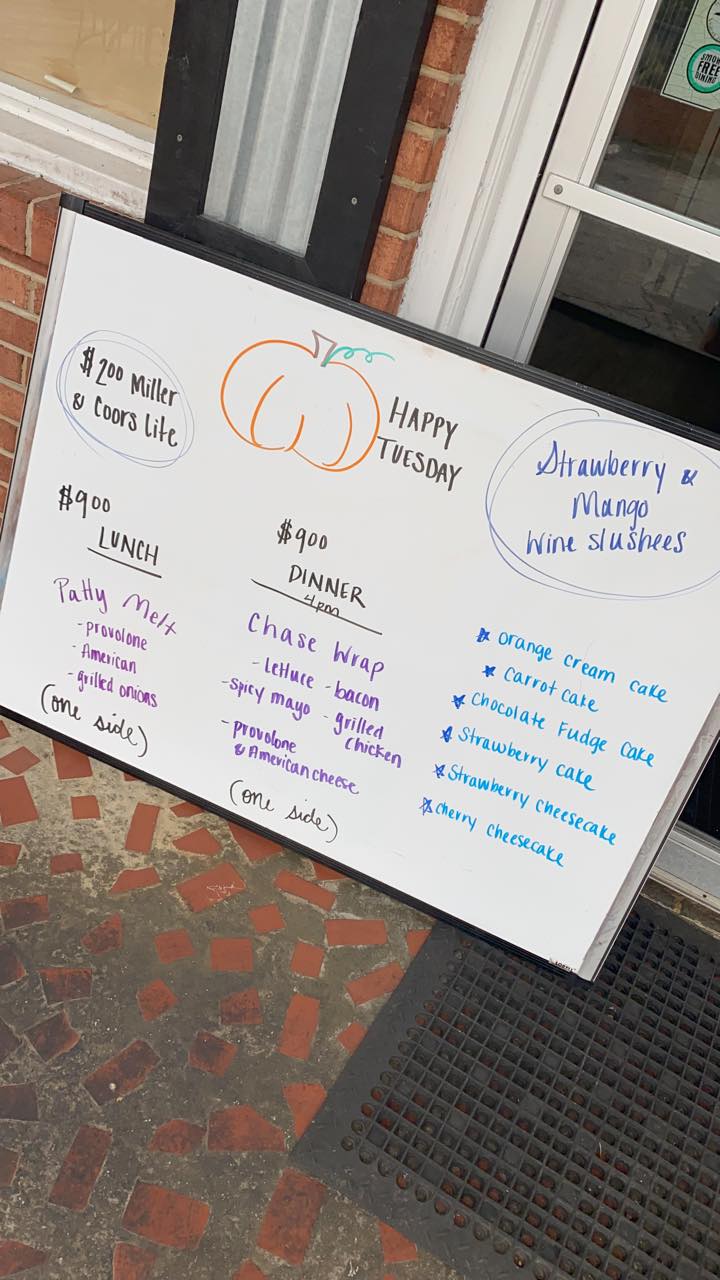 SMOKE
FREE
DINING
$2.00 Miller
& Coors Lite
HAPPY
TUESDAY
Strawberry &
Mango
Wine slushees
$9.00
LUNCH
Patty Melt
- provolone
- American
- grilled onions
(one side)
$9.00
DINNER
4pm
Chase Wrap
- Lettuce - bacon
- spicy mayo - grilled
chicken
- provolone
& American cheese
(one side)
orange cream cake
carrot cake
chocolate Fudge cake
Strawberry cake
Strawberry cheesecake
cherry cheesecake